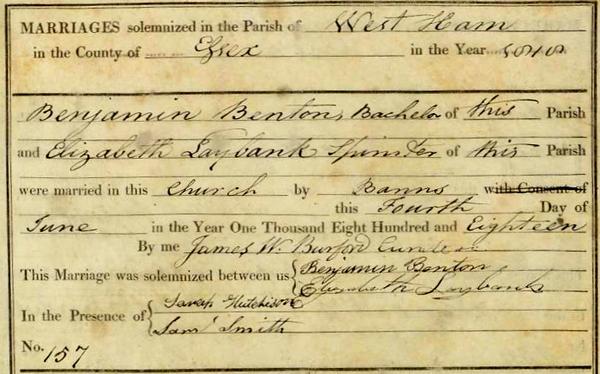 MARRIAGES solemnized in the Parish of West Ham
in the County of Essex in the Year 1818
Benjamin Benton, Bachelor of this Parish
and Elizabeth Laybank Spinster of this Parish
were married in this Church by Banns with Consent of
this Fourth Day of
June in the Year One Thousand Eight Hundred and Eighteen
By me James W. Burford Curate
This Marriage was solemnized between us Benjamin Benton
Elizabeth Laybank
In the Presence of Sarah Hutchison
Saml Smith
No. 157